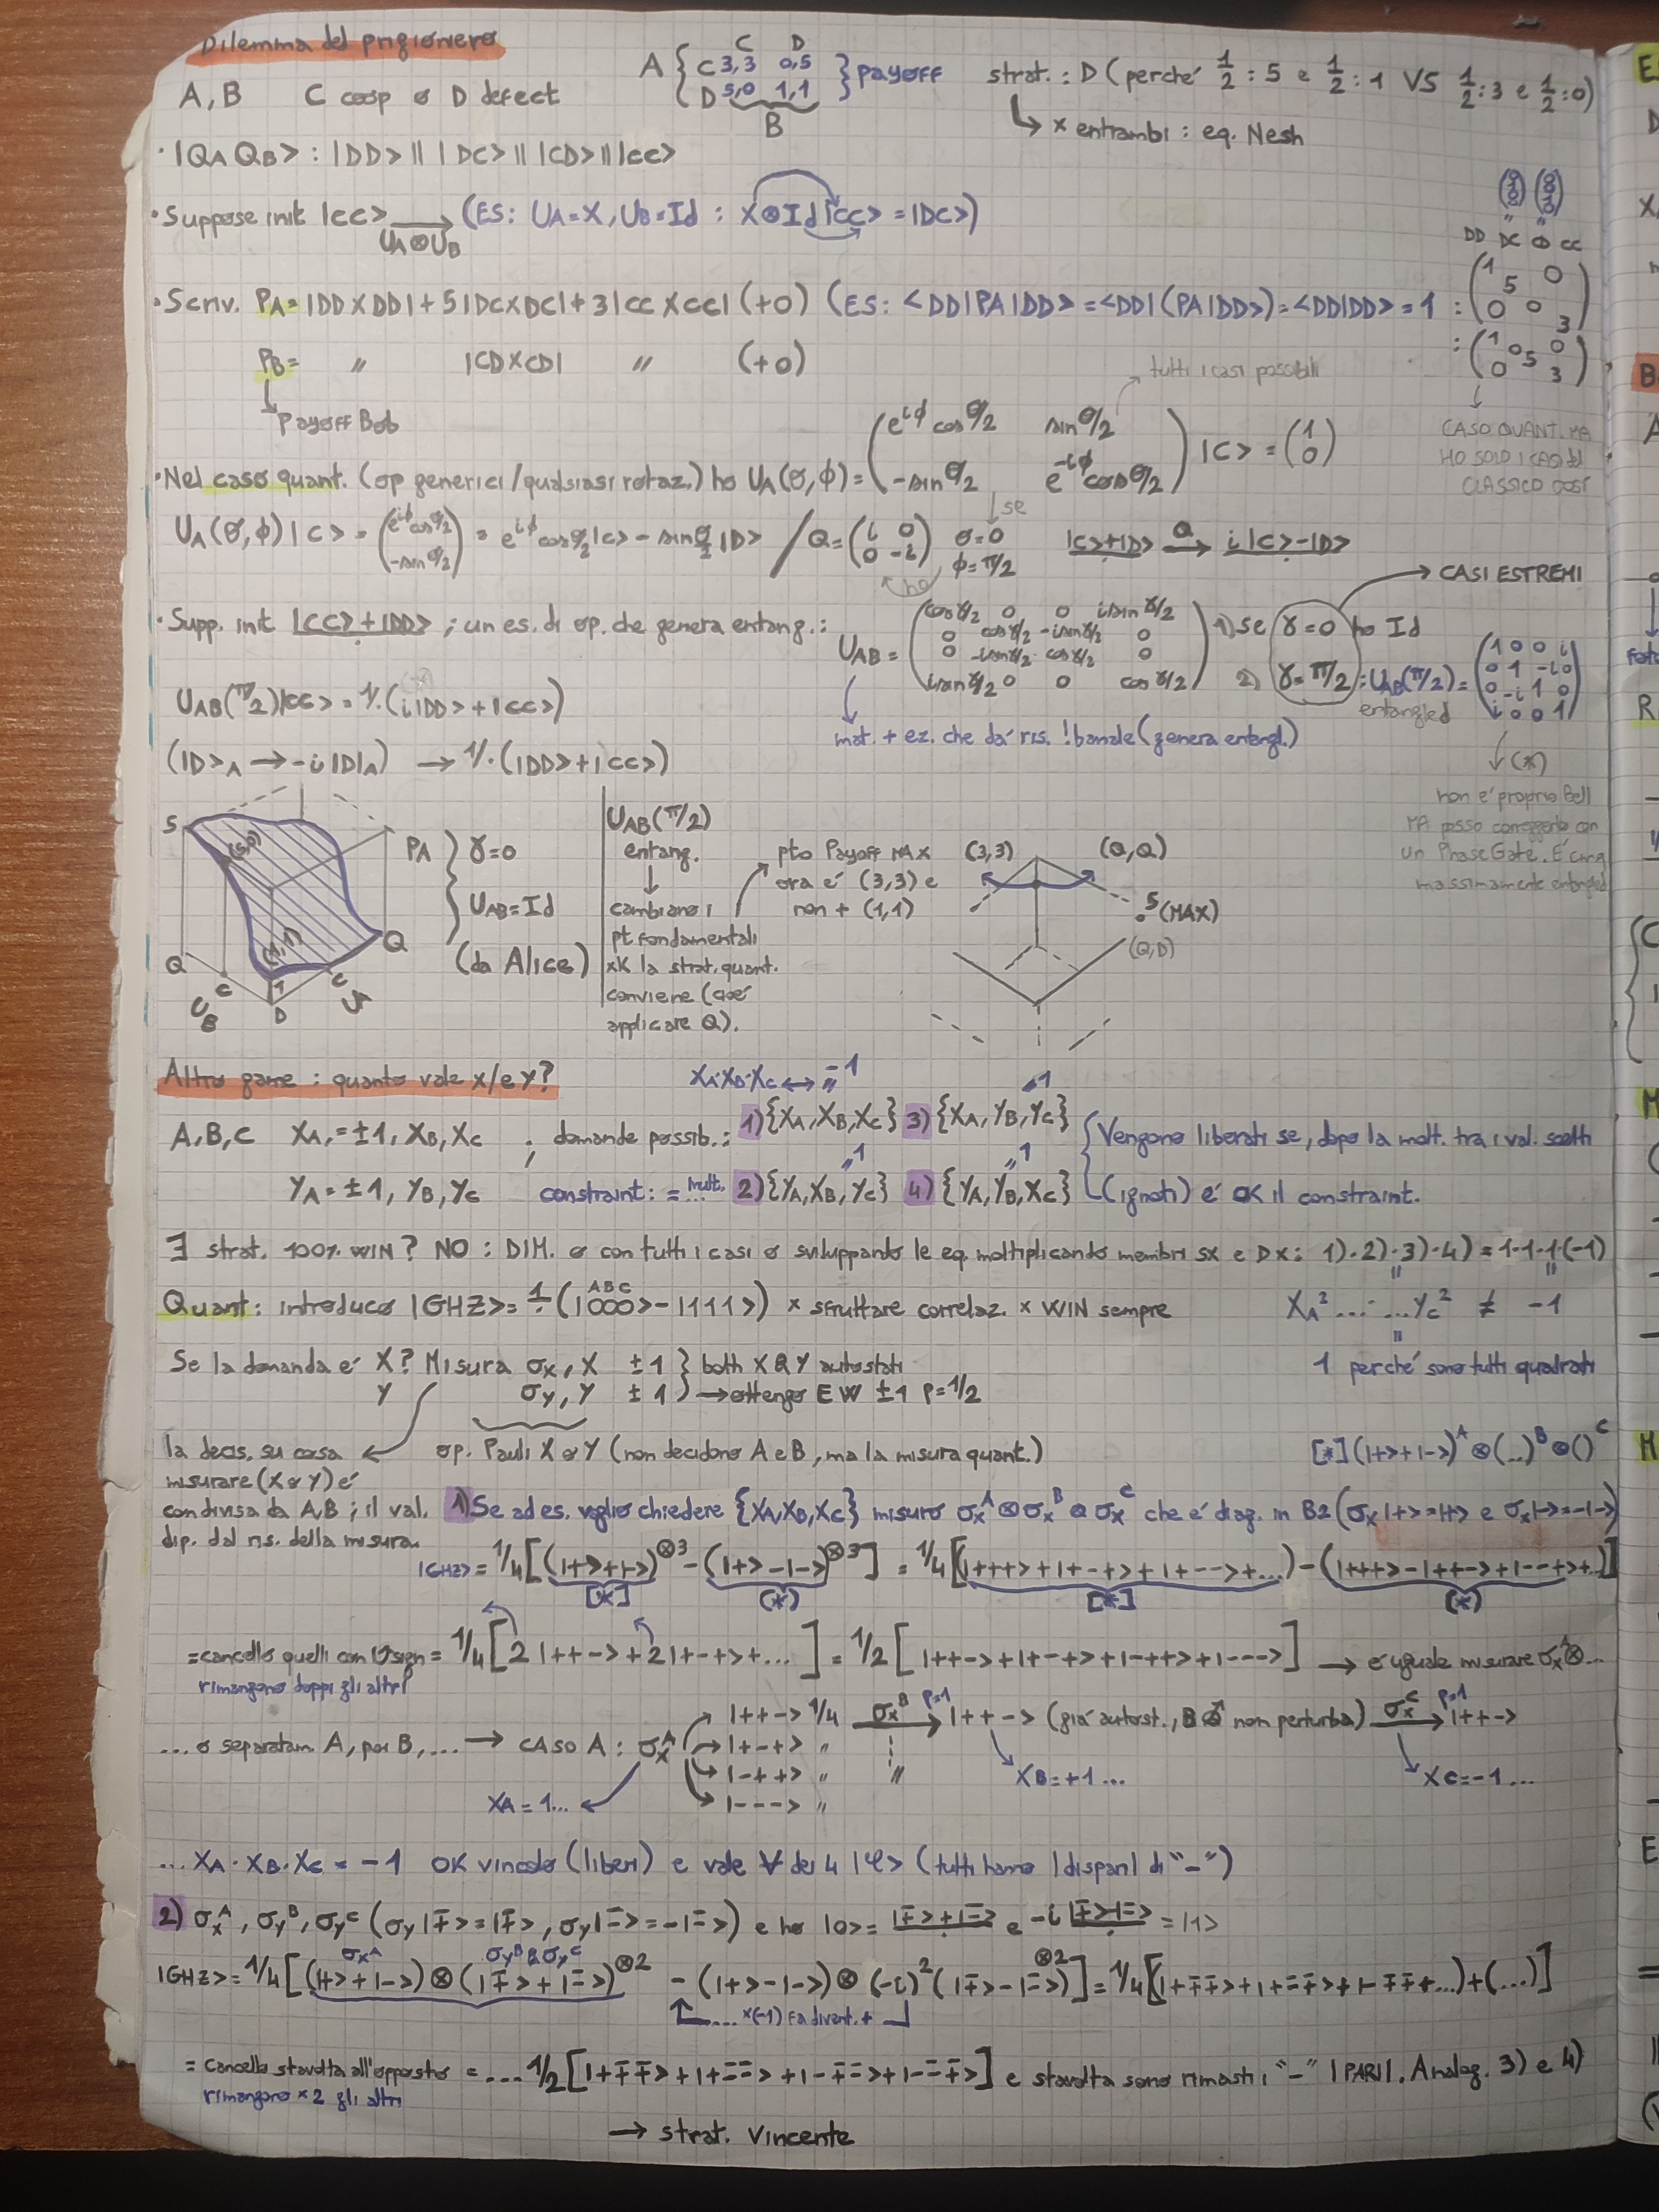 Dilemma del prigioniero
A, B C coop o D defect
A { C D
C 3,3 0,5
D 5,0 1,1 } payoff
B
strat.: D (perché 1/2 : 5 e 1/2 : 1 VS 1/2 : 3 e 1/2 : 0)
↳ x entrambi : eq. Nesh
· |QA QB> : |DD> || |DC> || |CD> || |CC>
· Suppose init |CC> → UA⊗UB (ES: UA=X, UB=Id : X⊗Id|CC> = |DC>)
DD DC CC
· Scriv. PA= |DDXDD| + 5|DCXDC| + 3|CCXCC| (+0) (ES: <DD|PA|DD> = <DD|(PA|DD>) = <DD|DD> = 1 : (1 5 0 0 0 3)
PB= " |CDXCD| " (+0) : (1 0 0 0 5 3)
↳ Payoff Bob
tutti i casi possibili
CASO QUANT. MA
HO SOLO I CASI del
CLASSICO COSÌ
· Nel caso quant. (op generici/qualsiasi rotaz.) ho UA(θ,ϕ) = (e^iϕ cos θ/2 sin θ/2
-sin θ/2 e^-iϕ cos θ/2) |C> = (1 0)
UA(θ,ϕ)|C> = (e^iϕ cos θ/2 -sin θ/2) = e^iϕ cos θ/2 |C> - sin θ/2 |D> / Q = (i 0 0 -i) se θ=0 ϕ=π/2 |C>+|D> →Q i|C>-|D>
ho
→ CASI ESTREMI
· Supp. init |CC>+|DD> ; un es. di op. che genera entang.:
UAB = (cos γ/2 0 0 i sin γ/2
0 cos γ/2 -i sin γ/2 0
0 -i sin γ/2 cos γ/2 0
i sin γ/2 0 0 cos γ/2)
1) se γ=0 ho Id
2) γ=π/2 : UAB(π/2) = (1 0 0 i
0 1 -i 0
0 -i 1 0
i 0 0 1)
entangled
UAB(π/2)|CC> = 1/·(i|DD>+|CC>)
mat. + ez. che dà ris. !banale (genera entangl.)
(|D>A → -i|D|A) → 1/·(|DD>+|CC>)
↓ (*)
non è proprio Bell
MA posso correggerlo con
un PhaseGate. È cmq
massimamente entangled
5
(5,0)
(1,1)
Q C D C Q
UB UA
PA } γ=0
UAB=Id
(da Alice)
UAB(π/2)
entang.
↓
cambiano i
pt fondamentali
xK la strat. quant.
conviene (cioè
applicare Q).
pto Payoff MAX
ora è (3,3) e
non + (1,1)
(3,3)
(Q,Q)
5 (MAX)
(Q,D)
Altro game : quanto vale x/e y?
XA·XB·XC ↔ = -1
A,B,C XA,=±1, XB, XC ; domande possib.: 1) {XA,XB,XC} 3) {XA,YB,YC} { Vengono liberati se, dopo la molt. tra i val. scelti
YA=±1, YB, YC constraint: = mult. 2) {YA,XB,YC} 4) {YA,YB,XC} (ignoti) è OK il constraint.
∃ strat. 100% WIN? NO : DIM. o con tutti i casi o sviluppando le eq. moltiplicando membri sx e Dx: 1)·2)·3)·4) = 1·1·1·(-1)
Quant: introduco |GHZ> = 1/·(|000> - |111>) x sfruttare correlaz. x WIN sempre XA²... ...YC² ≠ -1
ABC
Se la domanda è X? Misura σx, X ±1 } both X & Y autostati 1 perché sono tutti quadrati
Y σy, Y ±1 → ottengo EW ±1 p=1/2
la decis. su cosa
misurare (X o Y) è
condivisa da A,B ; il val.
dip. dal ris. della misura.
op. Pauli X o Y (non decidono A e B, ma la misura quant.) [*] (|+>+|->)^A ⊗ (...)^B ⊗ ()^C
1) Se ad es. voglio chiedere {XA,XB,XC} misuro σx^A ⊗ σx^B ⊗ σx^C che è diag. in B2 (σx|+>=|+> e σx|->=-|->)
|GHZ> = 1/4 [(|+>+|->)^⊗3 - (|+>-|->)^⊗3] = 1/4 [(|+++>+|+-+>+|+-->+...) - (|+++>-|++->+|--+>+..)]
[*] (*) [*] (*)
=cancello quelli con U sign = 1/4 [2|++->+2|+-+>+...] = 1/2 [|++->+|+-+>+|-++>+|--->] → è uguale misurare σx^A⊗...
rimangono doppi gli altri
... o separatam. A, poi B, ... → CASO A : σx^A
|++-> 1/4 σx^B p=1 → |++-> (già autost., B non perturba) σx^C p=1 → |++->
|+-+> "
|-++> " "
|---> "
XA = 1... XB = +1 ... XC = -1 ...
... XA · XB · XC = -1 OK vincolo (liberi) e vale ∀ dei 4 |φ> (tutti hanno |dispari| di "-")
2) σx^A, σy^B, σy^C (σy|+̄>=|+̄>, σy|-̄>=-|-̄>) e ho |0> = |+̄>+|-̄> e -i |+̄>-|-̄> = |1>
σx^A σy^B & σy^C
|GHZ> = 1/4 [(|+>+|->) ⊗ (|+̄>+|-̄>)^⊗2 - (|+>-|->) ⊗ (-i)² (|+̄>-|-̄>)^⊗2] = 1/4 [(|++̄+̄>+|+-̄+̄>+|-+̄+̄+...)+(...)]
... x(-1) fa divent. +
= cancello stavolta all'opposto = ... 1/2 [|++̄+̄>+|+-̄-̄>+|-+̄-̄>+|--̄+̄>] e stavolta sono rimasti i "-" |PARI|. Analog. 3) e 4)
rimangono x2 gli altri
→ strat. vincente